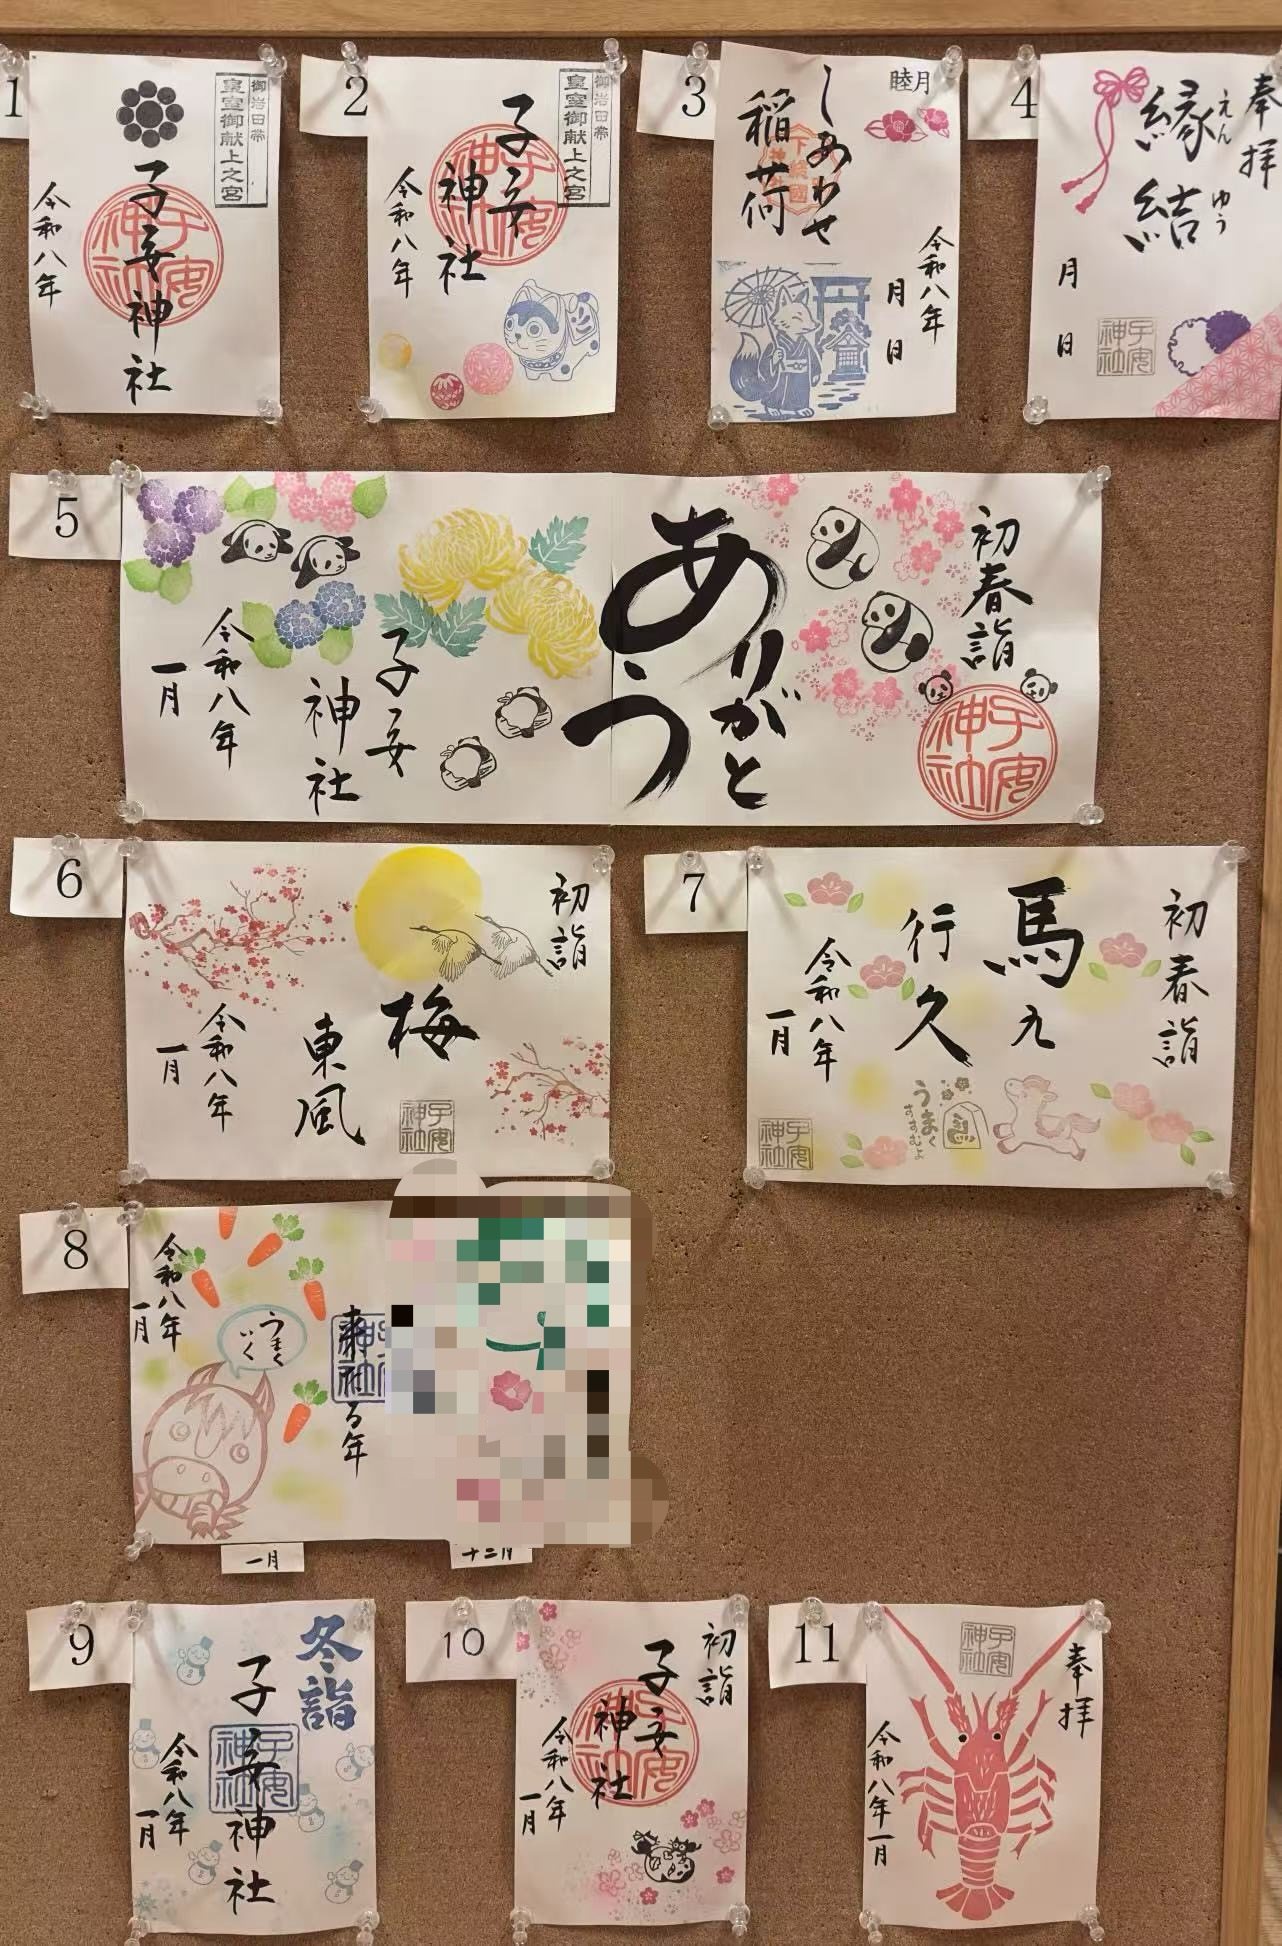 1
御岩田帯
皇室御献上之宮
子安神社
令和八年
2
御岩田帯
皇室御献上之宮
子安
神社
令和八年
3
睦月
しあわせ
稲荷
令和八年
月 日
4
奉拝
縁結
えん ゆう
月 日
子安神社
5
初春詣
ありがとう
子安神社
子安
神社
令和八年
一月
6
初詣
梅
東風
子安神社
令和八年
一月
7
初春詣
馬九
行久
うまく
すすむよ
馬
令和八年
一月
子安神社
8
令和八年
一月
うまく
いく
る年
一月
十二月
9
冬詣
子安神社
令和八年
一月
10
初詣
子安
神社
令和八年
一月
11
奉拝
子安神社
令和八年一月